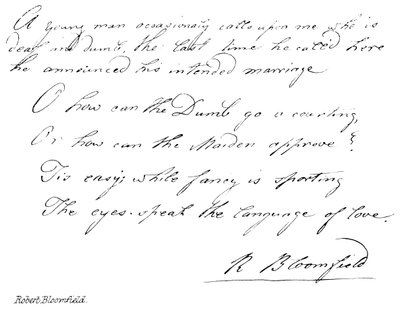 A young man occasionally calls upon me who is
deaf and dumb, the last time he called here
he announced his intended marriage
O how can the Dumb go a courting,
Or how can the Maiden approve?
Tis easy; while fancy is sporting
The eyes speak the language of love.
R Bloomfield
Robert Bloomfield.